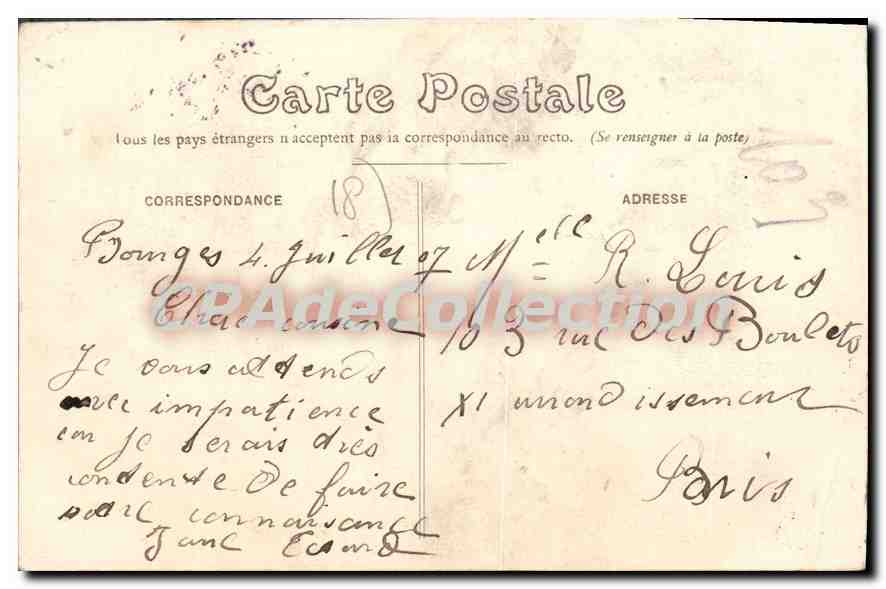 Carte Postale
Tous les pays étrangers n'acceptent pas la correspondance au recto. (Se renseigner à la poste)
CORRESPONDANCE
18
ADRESSE
Bourges 4 Juillet 07
Chère cousine
Je vous attends
avec impatience
car je serais très
contente de faire
votre connaissance
Melle R. Louis
103 rue Des Boulets
XI arrondissement
Paris
CPAdeCollection